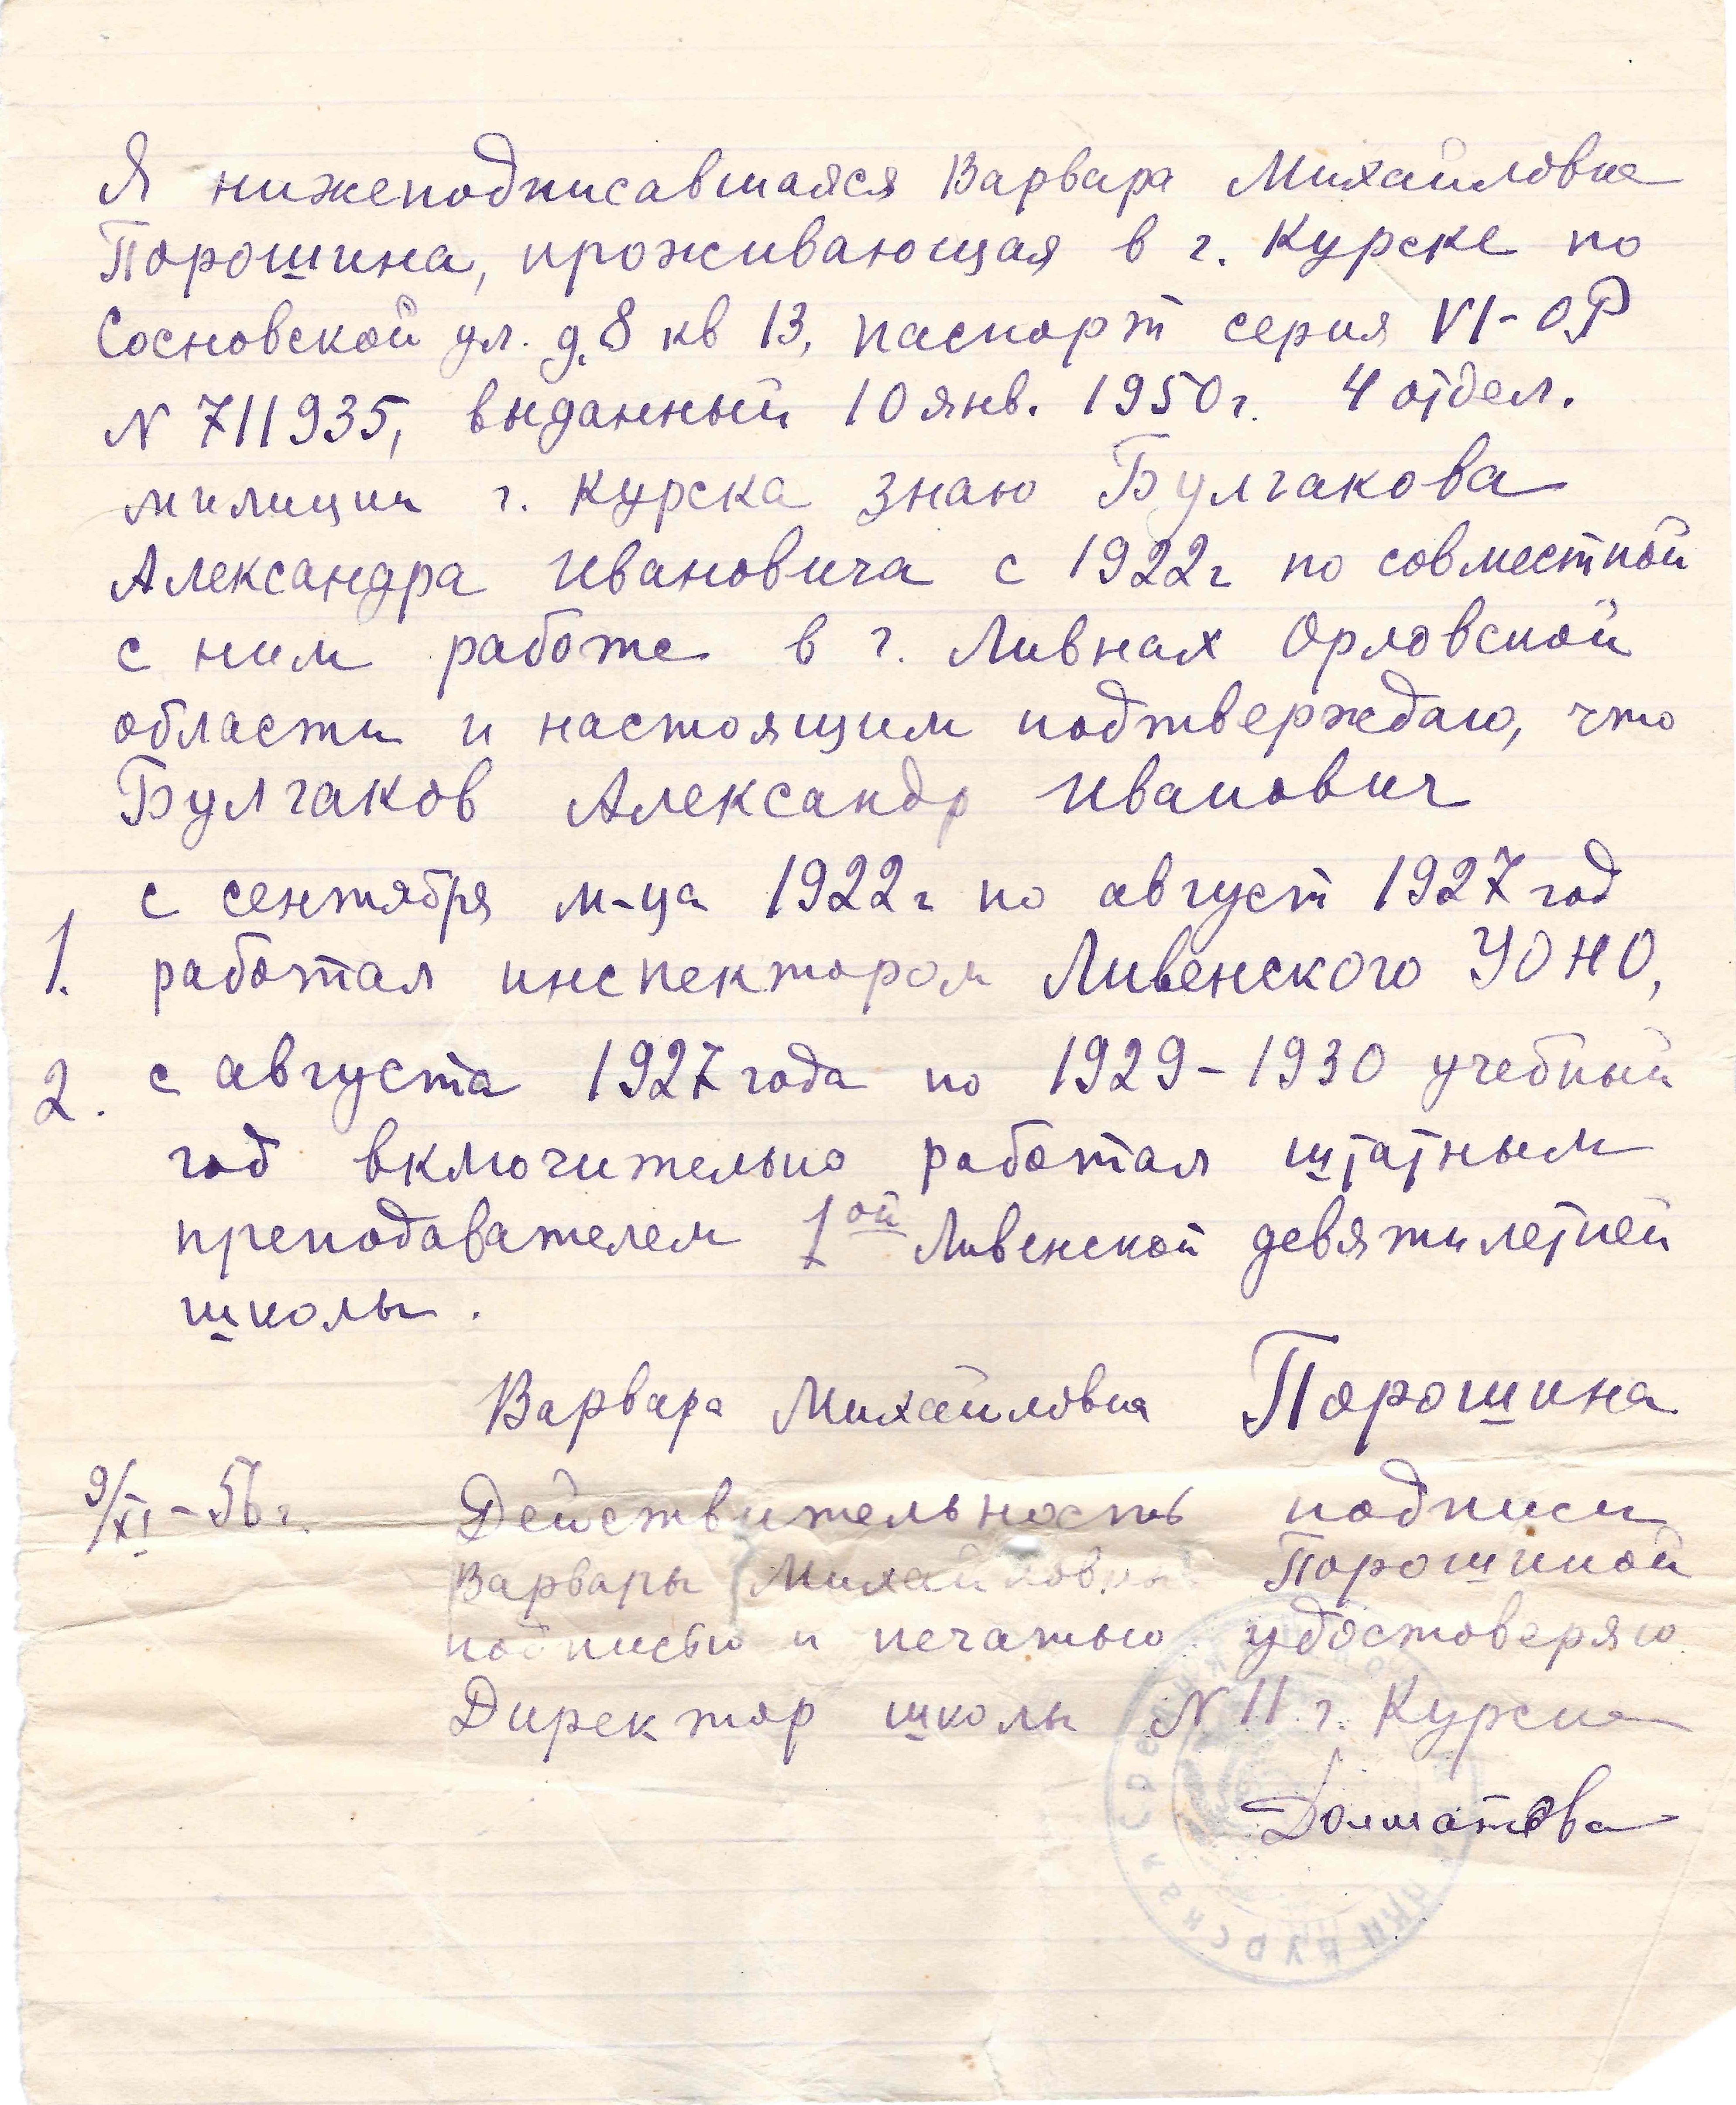 Я нижеподписавшаяся Варвара Михайловна
Порошина, проживающая в г. Курске по
Сосновской ул. д. 8 кв 13, паспорт серия VI-ОР
N 711935, выданный 10 янв. 1950 г. 4 отдел.
милиции г. Курска знаю Булгакова
Александра Ивановича с 1922 г по совместной
с ним работе в г. Ливнах Орловской
области и настоящим подтверждаю, что
Булгаков Александр Иванович
1. с сентября м-ца 1922 г по август 1927 год
работал инспектором Ливенского УОНО,
2. с августа 1927 года по 1929-1930 учебный
год включительно работал штатным
преподавателем 1ой Ливенской девятилетней
школы.
Варвара Михайловна Порошина
9/XI-56 г. Действительность подписи
Варвары Михайловны Порошиной
подписью и печатью удостоверяю
Директор школы N 11 г. Курска
Долматова